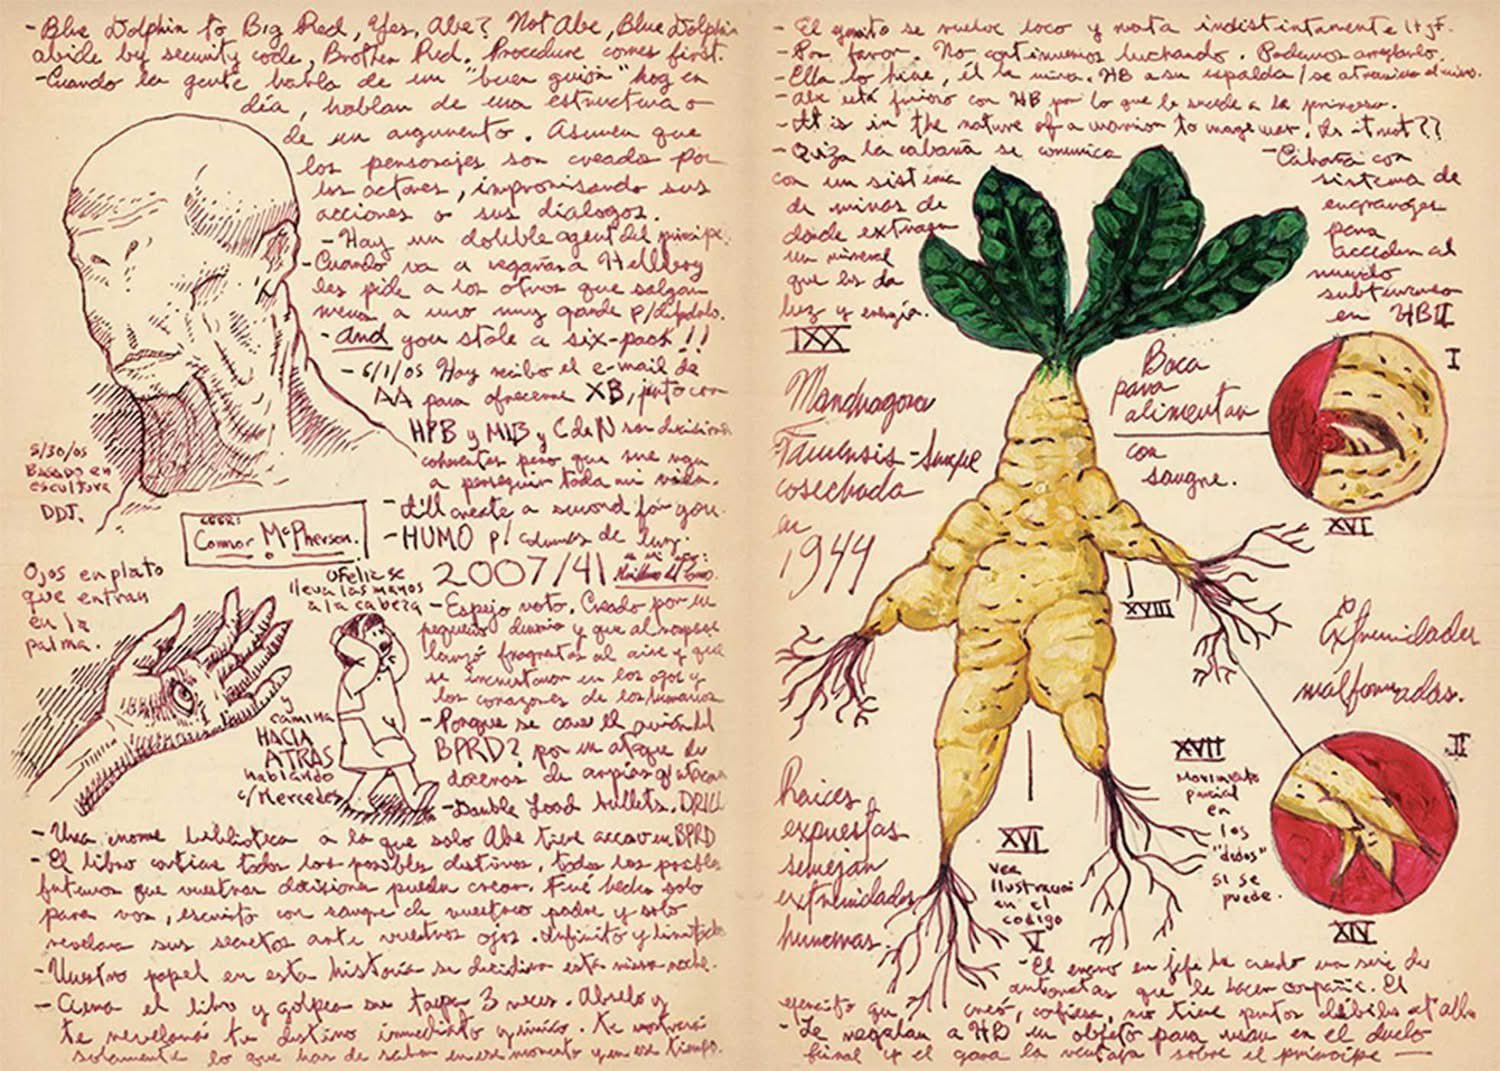 -Blue Dolphin to Big Red, Yes, Abe? Not Abe, Blue Dolphin
abide by security code, Brother Red. Procedure comes first.
-Cuando la gente habla de un "buen guión" hoy en
día, hablan de una estructura o
de un argumento. Asumen que
los personajes son creados por
los actores, improvisando sus
acciones o sus dialogos.
-Hay un doble agent del principe.
-Cuando va a regañar a Hellboy
les pide a los otros que salgan
menos a uno muy grande p/
-And you stole a six-pack!!
-6/1/05 Hoy recibo el e-mail de
AA para ofrecerme XB, junto con
HPB y MIB y C de N son decisiones
coherentes pero que me van
a perseguir toda mi vida.
-I'll create a sword for you.
-HUMO p/ columnas de luz.
2007/41
5/30/05
Basado en
escultura
DDJ.
LEER:
Connor McPherson.
Ojos en plato
que entran
en la
palma.
Ofelia se
lleva las manos
a la cabeza
y
camina
HACIA
ATRÁS
hablando
c/Mercedes
-Espejo roto. Creado por un
pequeño diablo y que al romperse
lanzó fragmentas al aire y que
se incrustaron en los ojos y
los corazones de los humanos
-Porque se cae el avión del
BPRD? por un ataque de
docenas de arpías q/ atacan
-Double Load bullets. DRILL
-Una enorme biblioteca a la que solo Abe tiene acceso en BPRD
-El libro contiene todos los posibles destinos, todos los posibles
futuros que vuestras decisiones puedan crear. Fué hecho solo
para vos, escrito con sangre de vuestro padre y solo
revelara sus secretos ante vuestros ojos. Infinito y limitado
-Vuestro papel en esta historia se decidira esta misma noche.
-Cierra el libro y golpea su tapa 3 veces. Abrelo y
te revelará tu destino inmediato y único. te mostrará
solamente lo que has de saber en ese momento y en ese tiempo.
-El ejercito se vuelve loco y mata indistintamente
-Por favor. No continuemos luchando. Podemos arreglarlo.
-Ella lo tiene, él la mira. HB a su espalda/se atraviesa el
-Abe está furioso con HB por lo que le sucede a la princesa.
-It is in the nature of a warrior to wage war. Is it not??
-Quiza la cabaña se comunica
con un sistema
de minas de
donde extraen
un mineral
que les da
luz y energía.
-Cabaña con
sistema de
engranajes
para
acceder al
mundo
subterraneo
en HBII
IXX
Mandragora
Taurensis-Sangre
cosechada
en
1944
Boca
para
alimentar
con
sangre.
I
XVI
XVIII
Extremidades
malformadas.
II
XVII
Movimiento
parcial
en
los
"dedos"
si se
puede.
XIV
Raices
expuestas
semejan
extremidades
humanas.
XVI
Ver
ilustracion
en el
codigo
V
-El enano en jefe ha creado una serie de
automatas que le hacen compañia. El
ejercito que creó, confiesa, no tiene puntos débiles
-Le regalan a HB un objeto para usar en el duelo
final y el gana la ventaja sobre el principe —